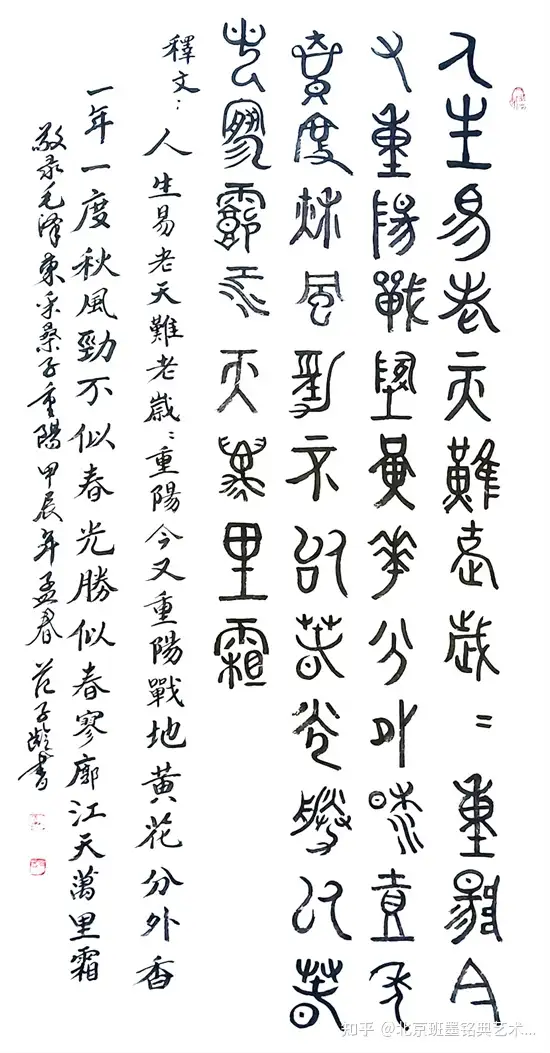 人生易老天難老歲〓重陽今
又重陽戰地黃花分外香壹年
壹度秋風勁不似春光勝似春
寥霩江天萬里霜
釋文：人生易老天難老歲〻重陽今又重陽戰地黃花分外香
一年一度秋風勁不似春光勝似春寥廓江天萬里霜
敬录毛泽東采桑子重陽甲辰年孟春 范子齡書
知乎 @北京班墨铭典艺术...